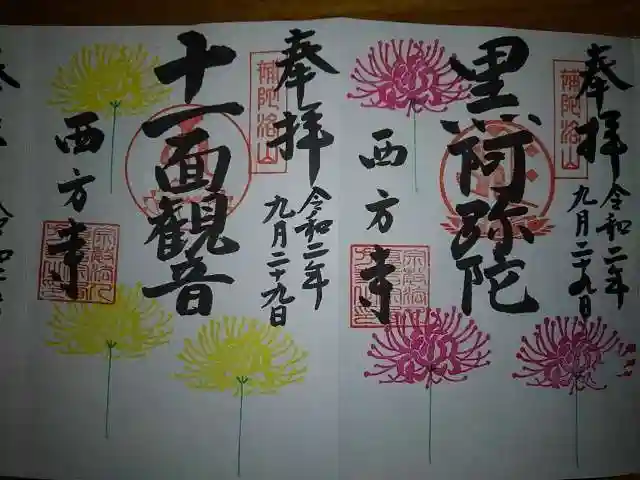 奉拝
令和二年
九月二十九日
補陀洛山
黒阿弥陀
西方寺
奉拝
令和二年
九月二十九日
補陀洛山
十一面観音
西方寺